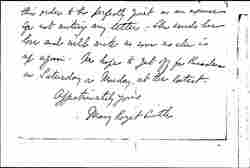 this order to be perfectly quiet as an excuse
for not writing any letters. She sends her
love and will write as soon as she is
up again. We hope to get off for Pasadena
on Saturday or Monday, at the latest
Affectionately yours
Mary